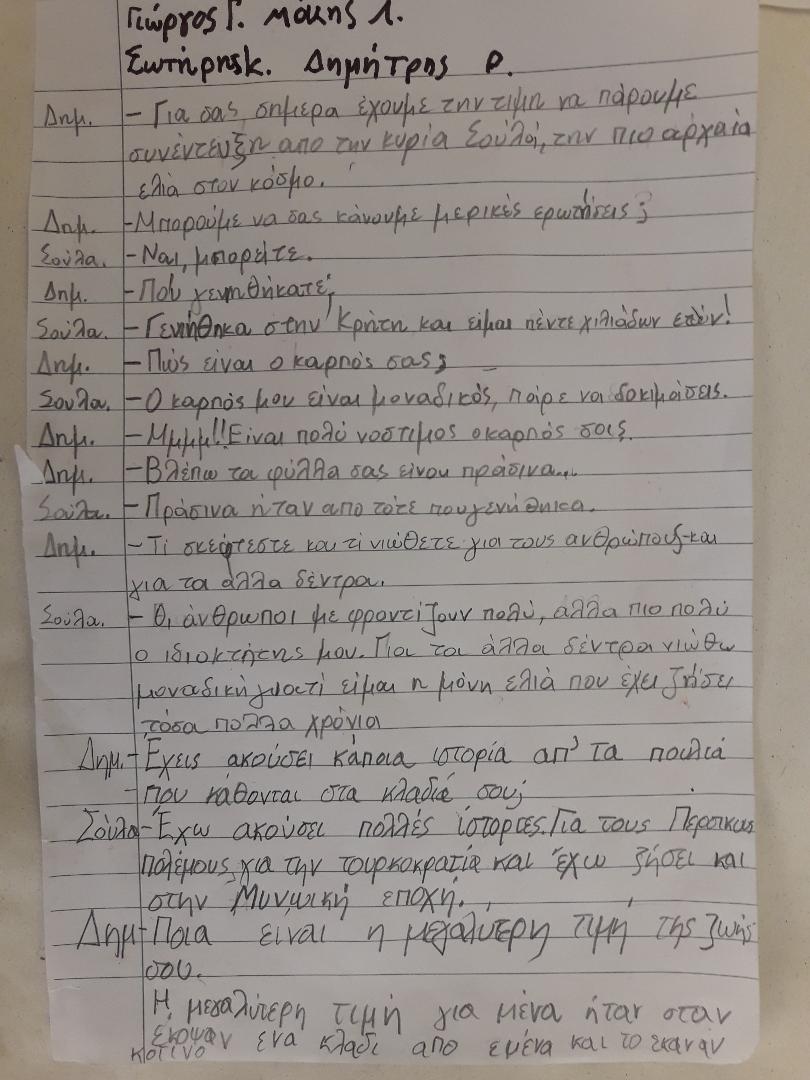 Γιώργος Γ. Μάκης Λ.
Σωτήρης Κ. Δημήτρης Ρ.
Δημ. - Για σας, σημερα έχουμε την τιμη να πάρουμε
συνέντευξη απο την κυρία Σούλα, την πιο αρχαία
ελιά στον κόσμο.
Δημ. - Μπορούμε να σας κάνουμε μερικές ερωτήσεις;
Σούλα. - Ναι, μπορείτε.
Δημ. - Πού γενηθήκατε;
Σούλα. - Γενήθηκα στην Κρήτη και είμαι πέντε χιλιάδων ετών!
Δημ. - Πώς είναι ο καρπός σας;
Σουλα. - Ο καρπός μου είναι μοναδικός, πάρε να δοκιμάσεις.
Δημ. - Μμμμ!! Είναι πολύ νοστιμος ο καρπός σας.
Δημ. - Βλέπω τα φύλλα σας είναι πράσινα...
Σουλα. - Πράσινα ήταν απο τότε που γενήθηκα.
Δημ. - Τι σκέφτεστε και τι νιώθετε για τους ανθρώπους και
για τα άλλα δέντρα.
Σούλα. - Οι άνθρωποι με φροντίζουν πολύ, άλλα πιο πολύ
ο ιδιοκτήτης μου. Για τα άλλα δέντρα νιώθω
μοναδική γιατί είμαι η μόνη ελιά που έχει ζήσει
τόσα πολλα χρόνια
Δημ. - Έχεις ακούσει κάποια ιστορία απ' τα πουλιά
- που κάθονται στα κλαδιά σου;
Σούλα - Έχω ακούσει πολλές ίστορίες. Για τους Περσικους
πολέμους, για την τουρκοκρατία και έχω ζήσει και
στην Μυνωική εποχή.
Δημ - Ποια ειναι η μεγαλύτερη τιμή της ζωής
σου.
Η μεγαλύτερη τιμή για μένα ήταν οταν
έκοψαν ενα κλαδι απο εμένα και το έκαναν
κότινο